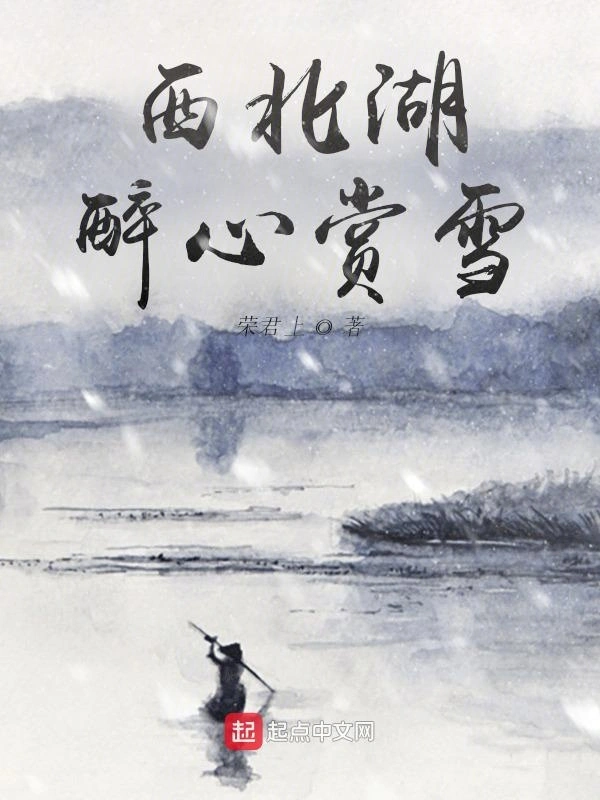 西北湖
醉心赏雪
荣君上◎著
起 起点中文网